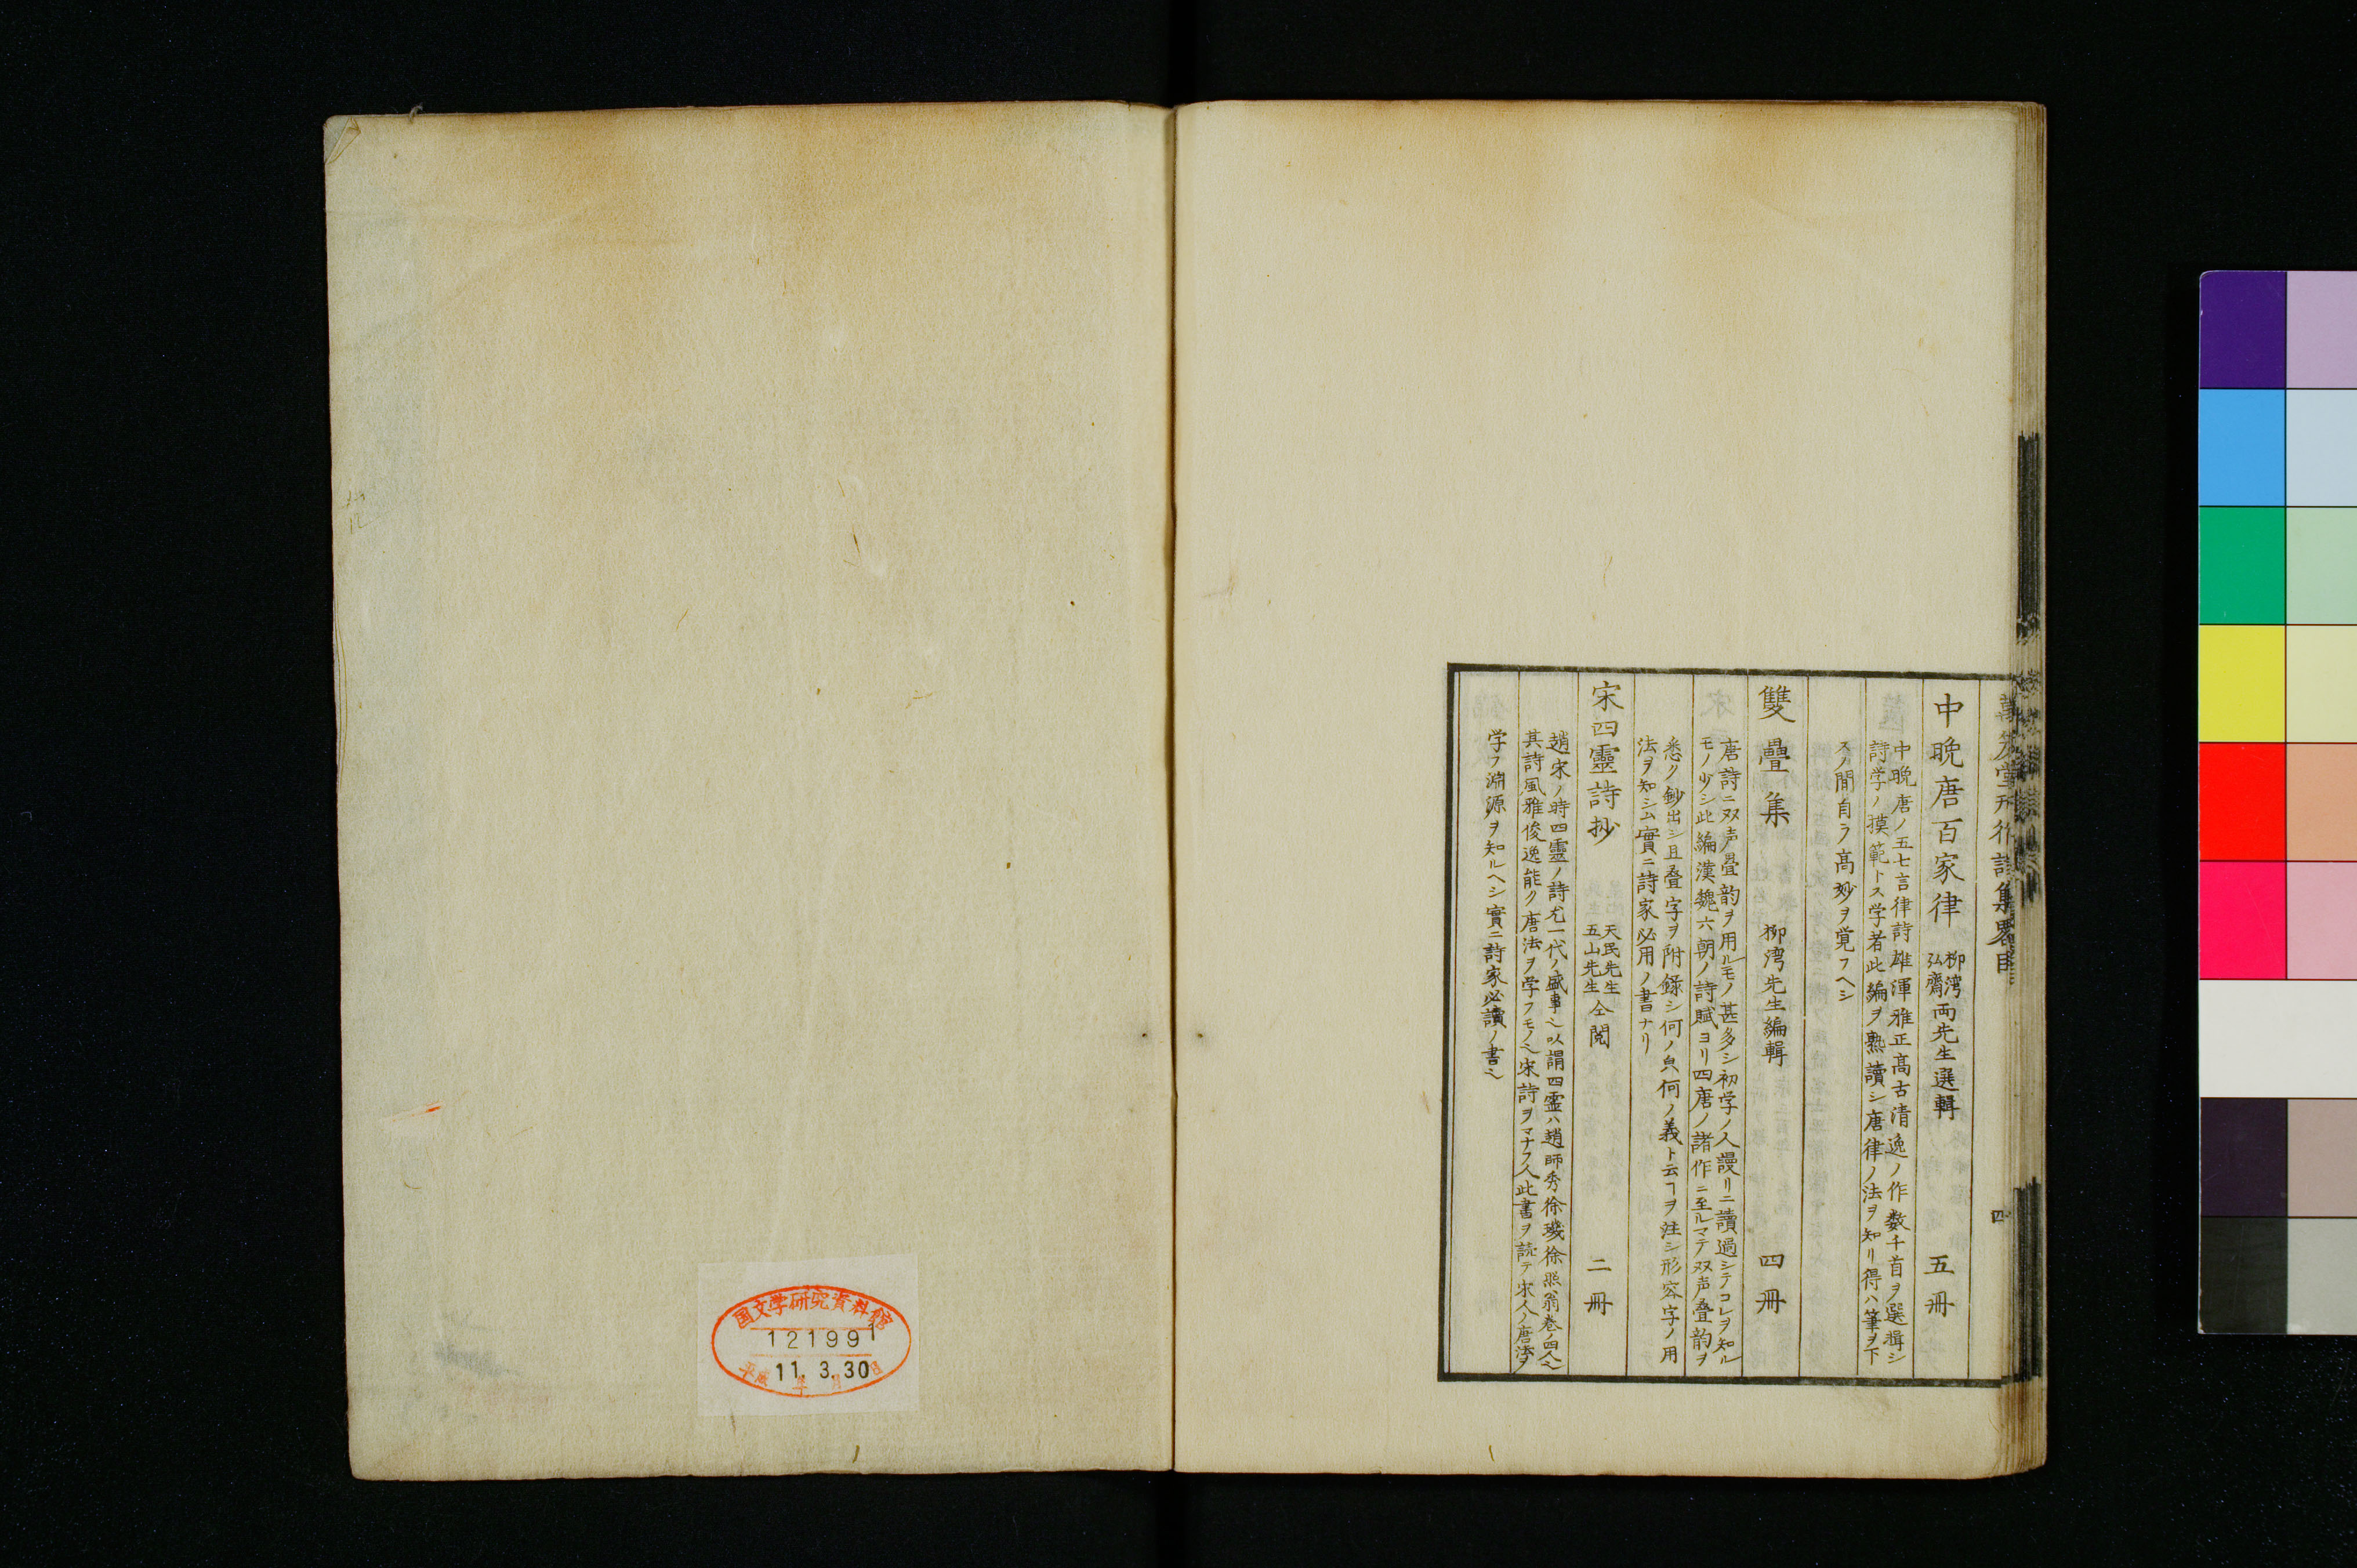 萬笈堂刊行詩集畧目
四
中晩唐百家律 柳湾弘齋両先生選輯 五冊
中晩唐ノ五七言律詩雄渾雅正高古清逸ノ作数千首ヲ選揖シ
詩学ノ摸範トス学者此編ヲ熟讀シ唐律ノ法ヲ知リ得ハ筆ヲ下
スノ間自ラ高妙ヲ覚フヘシ
雙疊集 柳湾先生編輯 四冊
唐詩ニ双声畳韵ヲ用ルモノ甚多シ初学ノ人謾リニ讀過シテコレヲ知ル
モノ少シ此編漢魏六朝ノ詩賦ヨリ四唐ノ諸作ニ至ルマテ双声叠韵ヲ
悉ク鈔出シ且叠字ヲ附録シ何ノ皃何ノ義ト云ヿヲ注シ形容字ノ用
法ヲ知シム實ニ詩家必用ノ書ナリ
宋四靈詩抄 天民先生五山先生仝閲 二冊
趙宋ノ時四靈ノ詩尤一代ノ盛事也以謂四霊ハ趙師秀徐璣徐照翁巻ノ四人也
其詩風雅俊逸能ク唐法ヲ学フモノ也宋詩ヲマナフ人此書ヲ読テ宋人ノ唐法ヲ
学フ淵源ヲ知ルヘシ實ニ詩家必讀ノ書也
国文学研究資料館
121991
平成11年3月30日